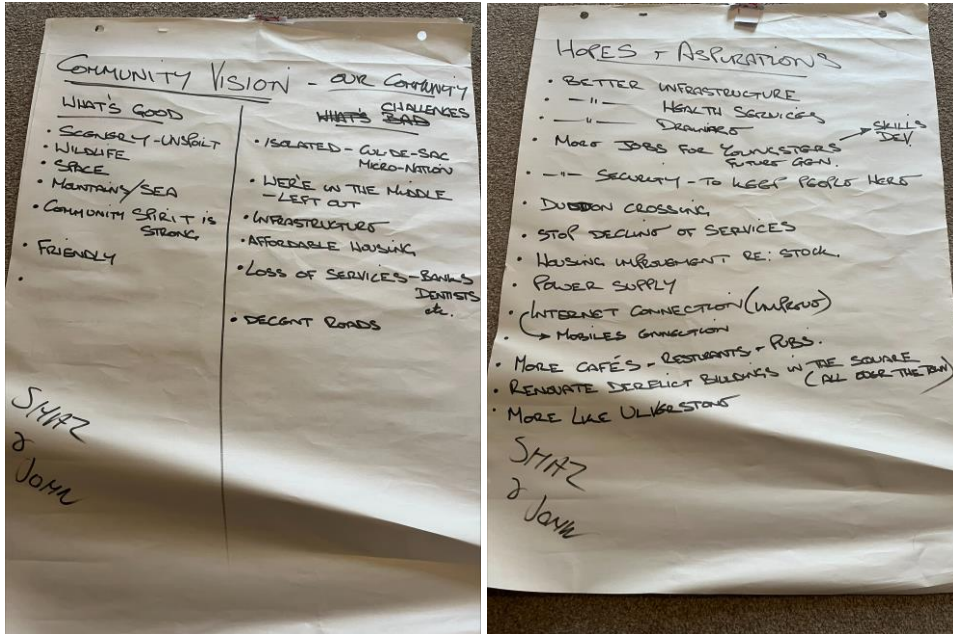 COMMUNITY VISION - OUR COMMUNITY
WHAT'S GOOD
• SCENERY - UNSPOILT
• WILDLIFE
• SPACE
• MOUNTAINS/SEA
• COMMUNITY SPIRIT IS
STRONG
• FRIENDLY
•
CHALLENGES
WHAT'S BAD
• ISOLATED - CUL-DE-SAC
MICRO-NATION
• WE'RE IN THE MIDDLE
- LEFT OUT
• INFRASTRUCTURE
• AFFORDABLE HOUSING
• LOSS OF SERVICES - BANKS
DENTISTS
etc.
• DECENT ROADS
SHAZ
&
JOHN
HOPES + ASPIRATIONS
• BETTER INFRASTRUCTURE
• -"- HEALTH SERVICES
• -"- DRAINAGE
• MORE JOBS FOR YOUNGSTERS → SKILLS
DEV.
FUTURE GEN.
• -"- SECURITY - TO KEEP PEOPLE HERE
• DUDDON CROSSING
• STOP DECLINE OF SERVICES
• HOUSING IMPROVEMENT RE: STOCK.
• POWER SUPPLY
• INTERNET CONNECTION (IMPROVE)
• → MOBILES CONNECTION
• MORE CAFÉS - RESTURANTS + PUBS.
• RENOVATE DERELICT BUILDINGS IN THE SQUARE
(ALL OVER THE TOWN)
• MORE LIKE ULVERSTONE
SHAZ
&
JOHN